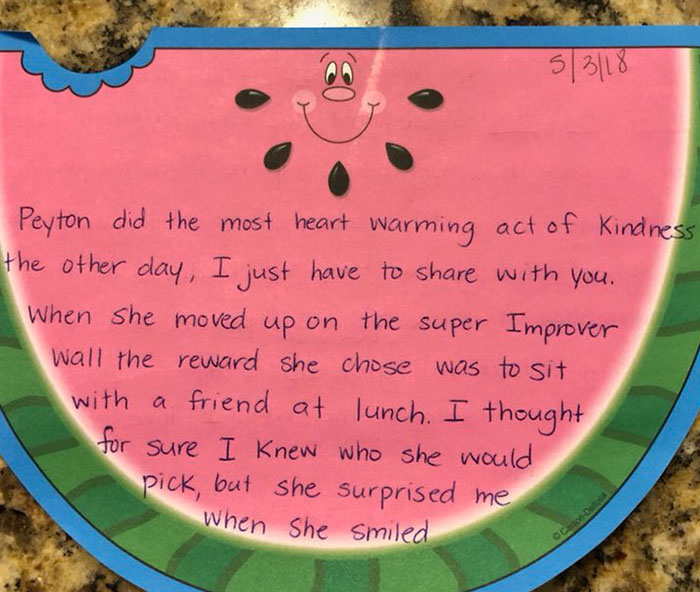 5/3/18
Peyton did the most heart warming act of Kindness
the other day, I just have to share with you.
When she moved up on the super Improver
Wall the reward she chose was to sit
with a friend at lunch. I thought
for sure I Knew who she would
pick, but she surprised me
when She smiled
© Carson-Dellosa